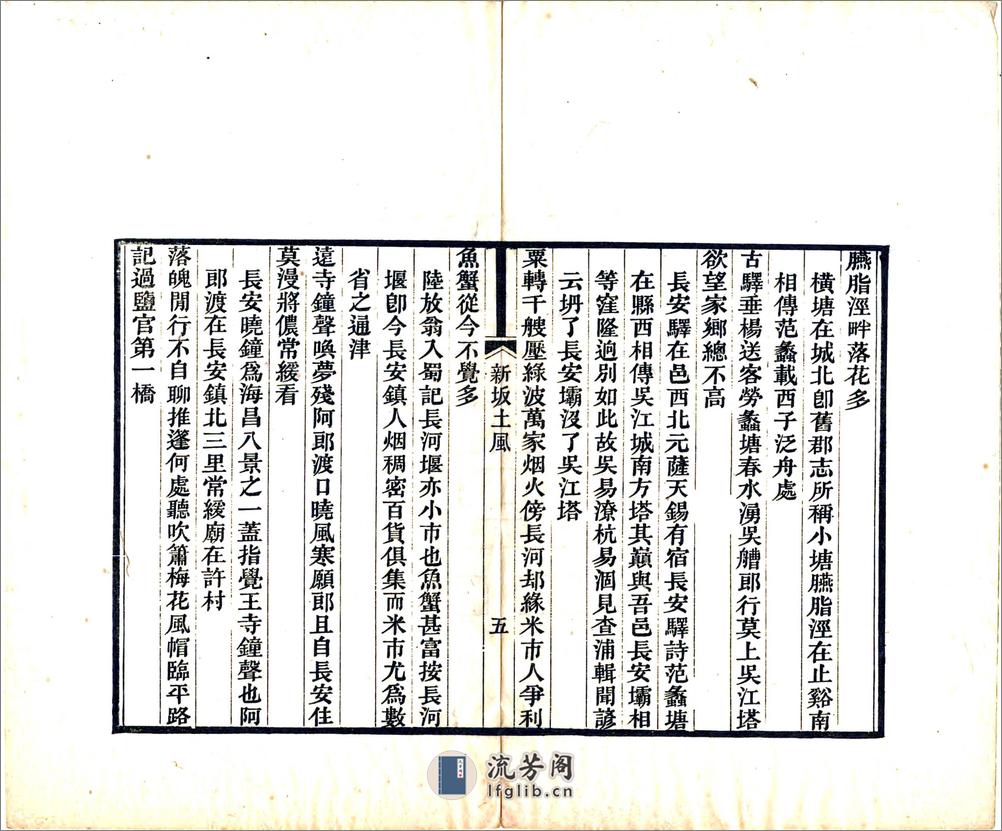 臙脂涇畔落花多
橫塘在城北卽舊郡志所稱小塘臙脂涇在止谿南
相傳范蠡載西子泛舟處
古驛垂楊送客勞蠡塘春水湧吳艚郎行莫上吳江塔
欲望家鄉總不高
長安驛在邑西北元薩天錫有宿長安驛詩范蠡塘
在縣西相傳吳江城南方塔其巔與吾邑長安壩相
等窪隆逈別如此故吳易潦杭易涸見查浦輯聞諺
云坍了長安壩沒了吳江塔
粟轉千艘壓綠波萬家烟火傍長河却緣米市人爭利
新坂土風
五
魚蟹從今不覺多
陸放翁入蜀記長河堰亦小市也魚蟹甚富按長河
堰卽今長安鎮人烟稠密百貨俱集而米市尤爲數
省之通津
遠寺鐘聲喚夢殘阿郎渡口曉風寒願郎且自長安住
莫漫將儂常緩看
長安曉鐘爲海昌八景之一蓋指覺王寺鐘聲也阿
郎渡在長安鎮北三里常緩廟在許村
落魄閒行不自聊推蓬何處聽吹簫梅花風帽臨平路
記過鹽官第一橋
流芳阁
lfglib.cn